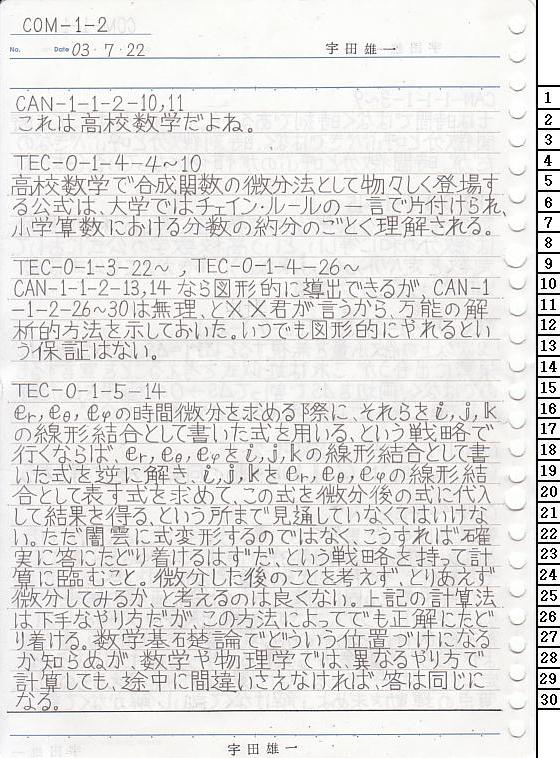 COM-1-2
No.
Date 03・7・22
宇田雄一
CAN-1-1-2-10,11
これは高校数学だよね。
TEC-0-1-4-4~10
高校数学で合成関数の微分法として物々しく登場す
る公式は、大学ではチェイン・ルールの一言で片付けられ、
小学算数における分数の約分のごとく理解される。
TEC-0-1-3-22~, TEC-0-1-4-26~
CAN-1-1-2-13,14なら図形的に導出できるが、CAN-1
-1-2-26~30は無理、と××君が言うから、万能の解
析的方法を示しておいた。いつでも図形的にやれるとい
う保証はない。
TEC-0-1-5-14
er, eθ, eφの時間微分を求める際に、それらをi, j, k
の線形結合として書いた式を用いる、という戦略で
行くならば、er, eθ, eφをi, j, kの線形結合として書
いた式を逆に解き、i, j, kをer, eθ, eφの線形結
合として表す式を求めて、この式を微分後の式に代入
して結果を得る、という所まで見通していなくてはいけな
い。ただ闇雲に式変形するのではなく、こうすれば確
実に答にたどり着けるはずだ、という戦略を持って計
算に臨むこと。微分した後のことを考えず、とりあえず
微分してみるか、と考えるのは良くない。上記の計算法
は下手なやり方だが、この方法によってでも正解にたど
り着ける。数学基礎論でどういう位置づけになる
か知らぬが、数学や物理学では、異なるやり方で
計算しても、途中に間違いさえなければ、答は同じに
なる。
宇田雄一
1
2
3
4
5
6
7
8
9
10
11
12
13
14
15
16
17
18
19
20
21
22
23
24
25
26
27
28
29
30